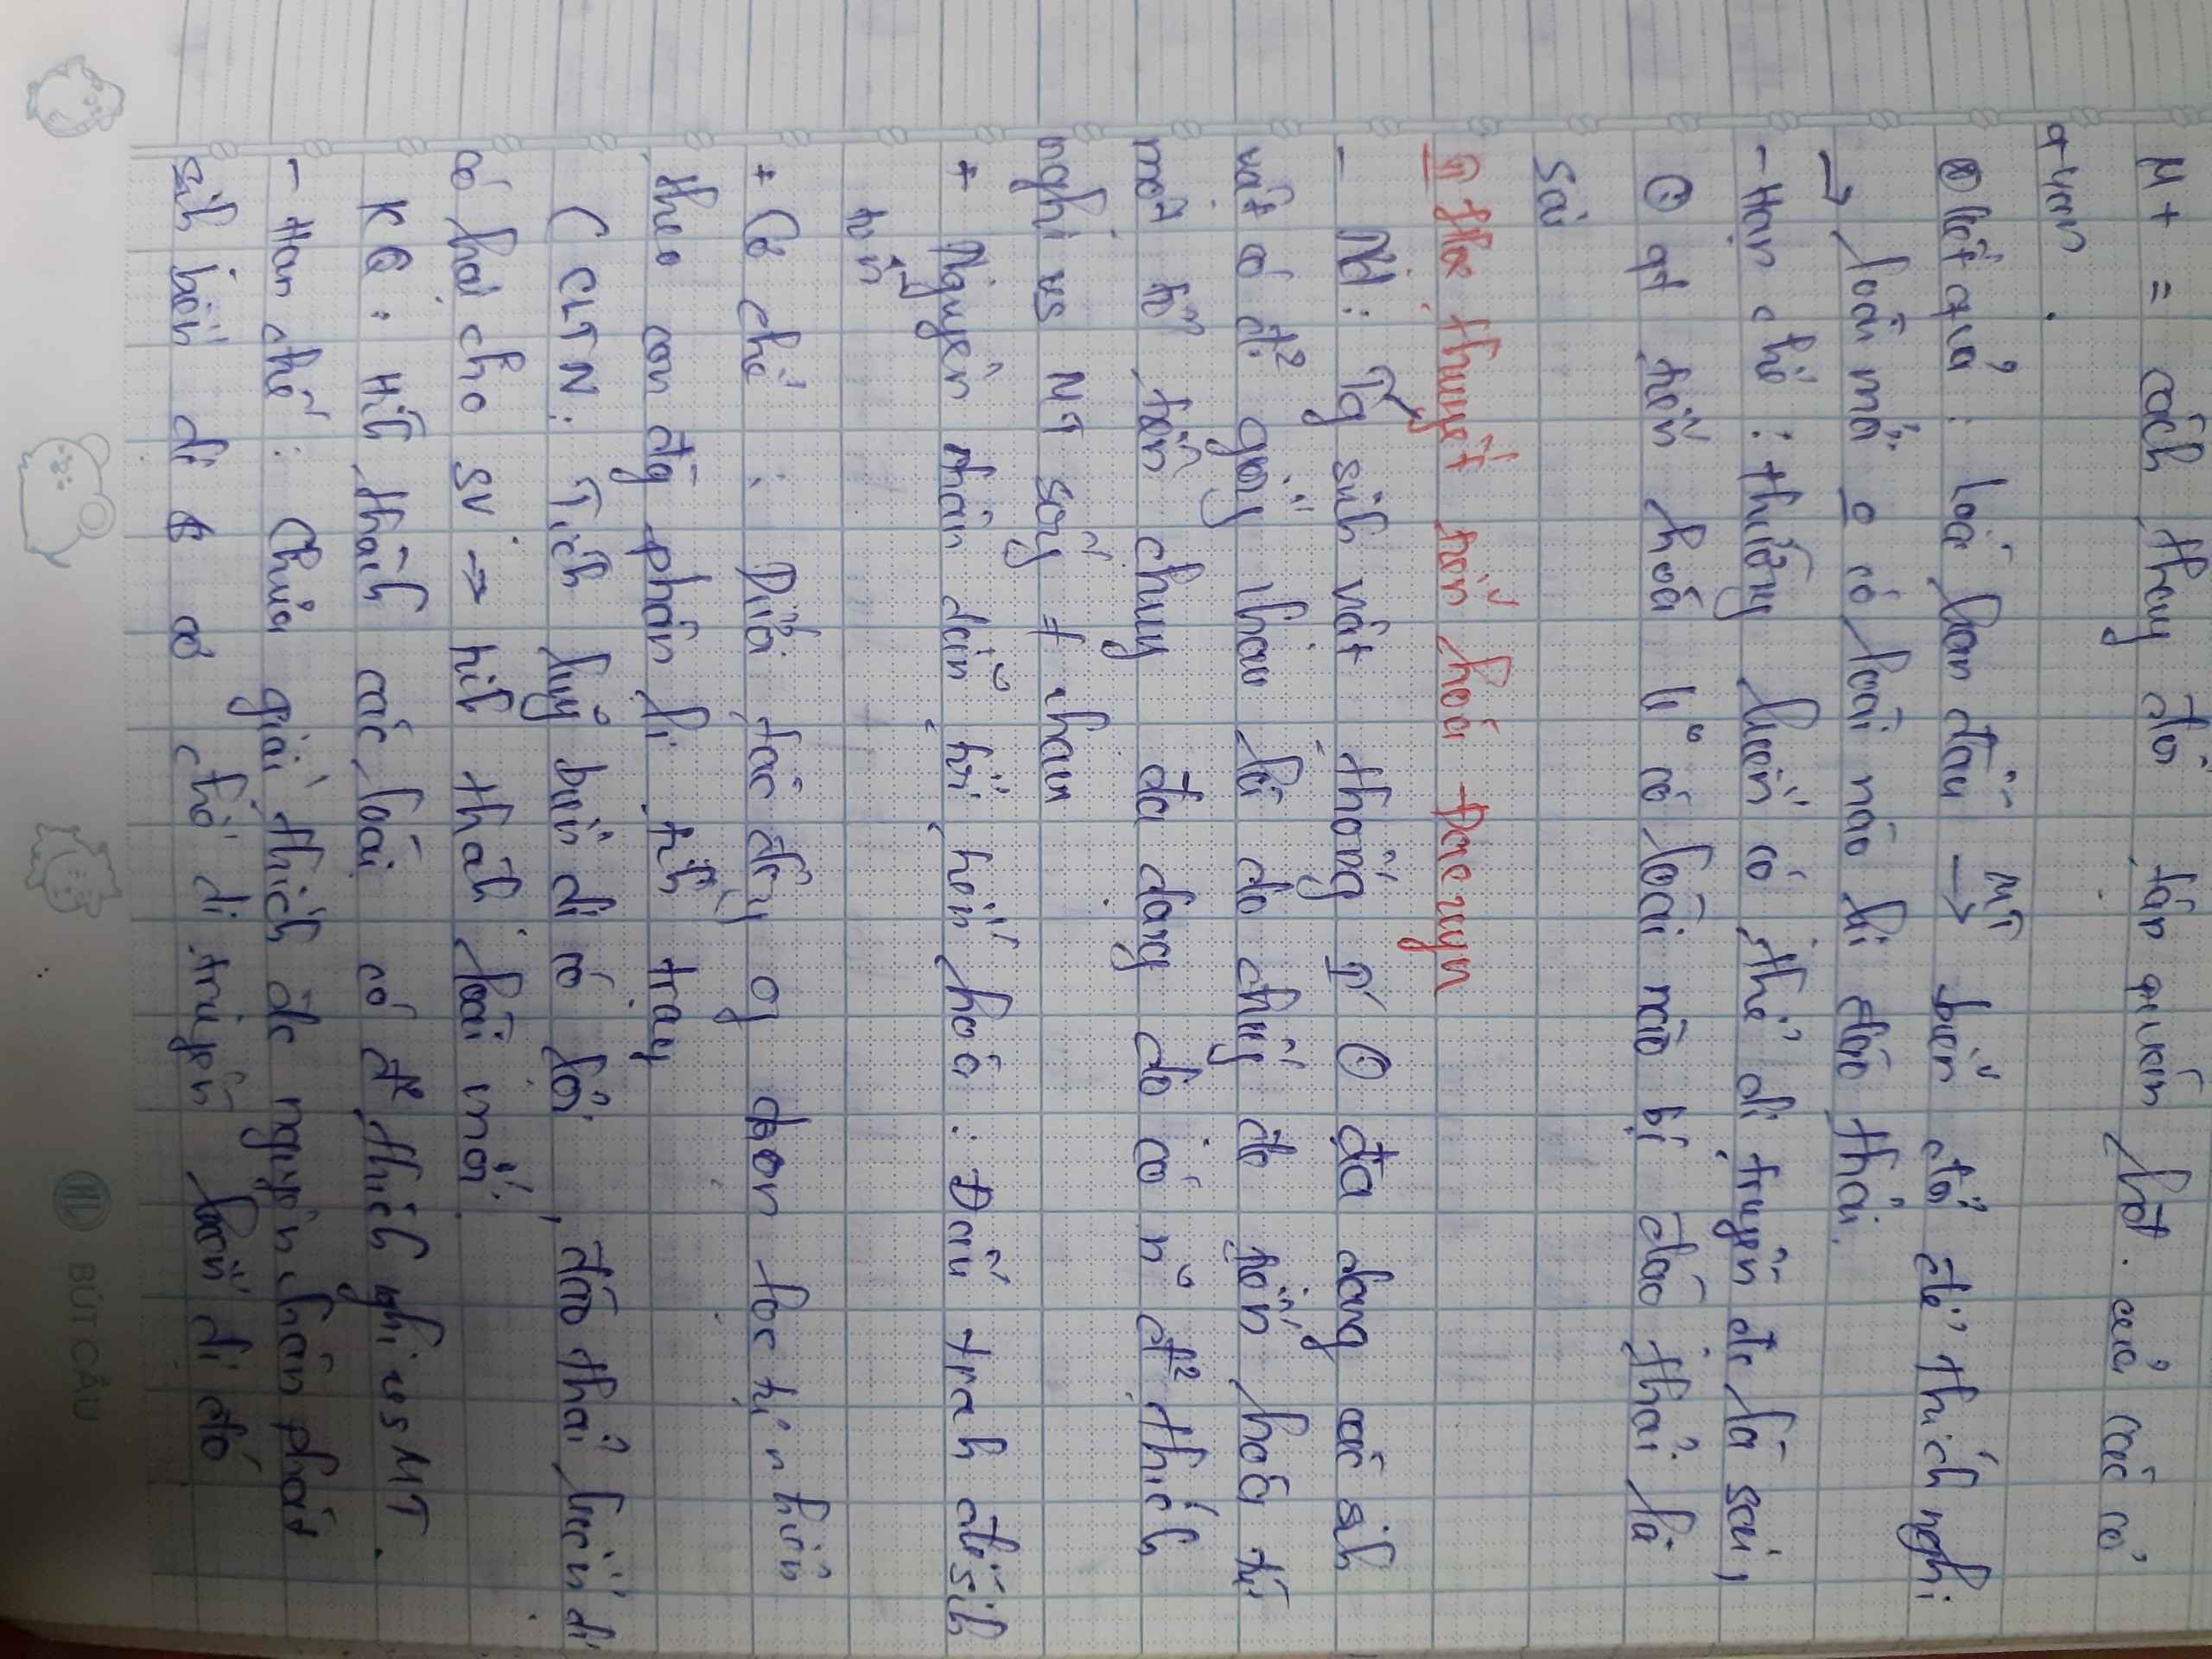 M+ = cách thay đổi tập quán hđ. của các cơ
quan.
⊗ kết quả : loài ban đầu MT → biến đổi để thích nghi
→ loài mới o có loài nào bị đào thải.
- Hạn chế : thường biến có thể di truyền đc là sai,
① qt tiến hoá k° có loài nào bị đào thải là
sai
II Học thuyết tiến hoá Đacuyn
- ND: Tg sinh vật thống I' ① đa dạng các sih
vật có đ² giống nhau là do chúng đc tiến hoá từ
một tổ tiên chung đa dạng do có n~ đ² thích
nghi vs MT sống ≠ nhau
+ Nguyên nhân dẫn tới tiến hoá : Đấu tranh để sih
tồn
+ Cơ chế : Dưới tác động of chọn lọc tự nhiên
theo con đg phân li tíh trạng
( CLTN: Tích luỹ biến dị có lợi, đào thải biến dị
có hại cho SV → hìh thành loài mới.
KQ : Hìh thành các loài có đ² thích nghi vs MT.
- Hạn chế : Chưa giải thích đc nguyên nhân phát
sih biến dị & cơ chế di truyền biến dị đó
BÚT CẦU